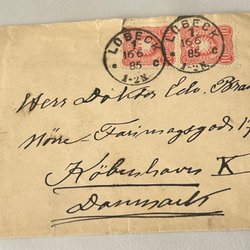 LÜBECK
1.
16 6
85
* c
1-2N.
LÜBECK
1.
16 6
85
* c
1-2N.
Herr Doktor Edv. Bran
Nörre Farimagsgade 1
Köbenhavn K
Danmark